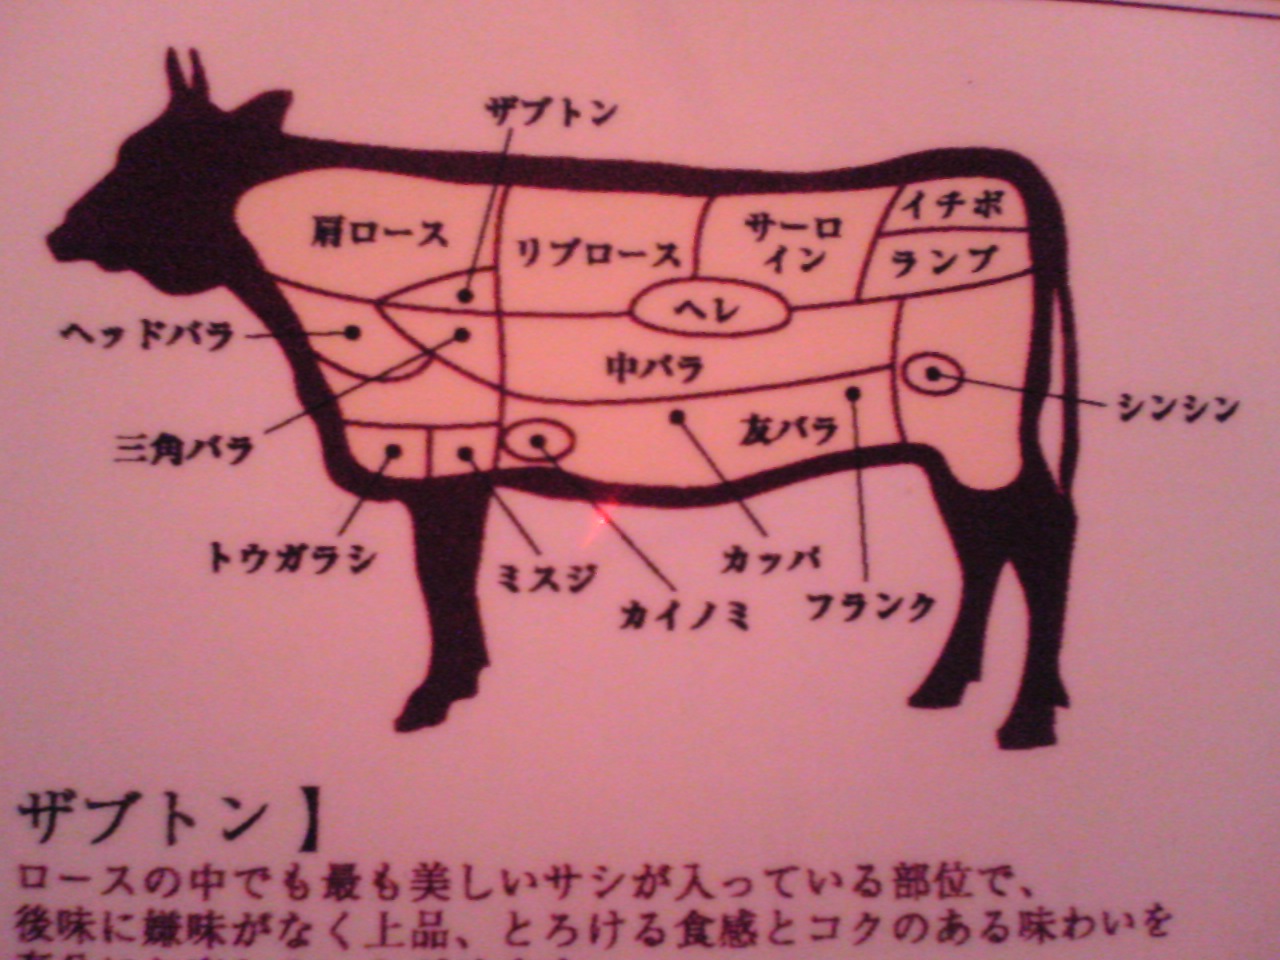 ザブトン
肩ロース
リブロース
サーロ
イン
イチボ
ランプ
ヘレ
ヘッドバラ
中バラ
シンシン
三角バラ
友バラ
トウガラシ
ミスジ
カイノミ
カッパ
フランク
ザブトン】
ロースの中でも最も美しいサシが入っている部位で、
後味に嫌味がなく上品、とろける食感とコクのある味わいを